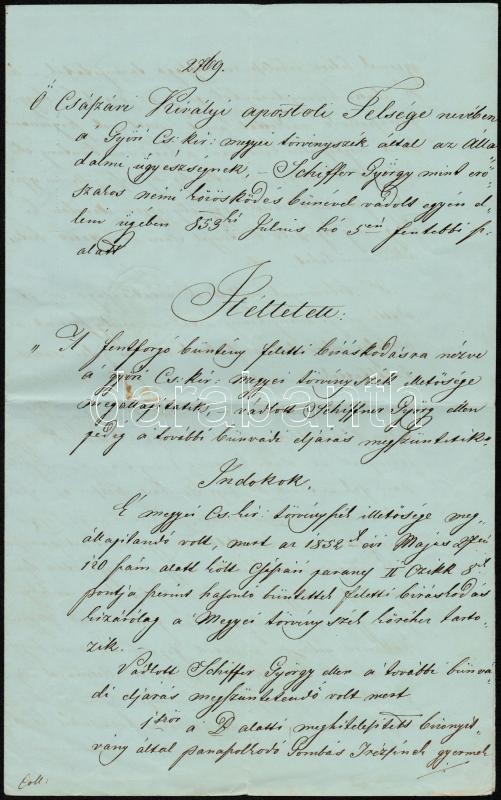 2769.
Ő Császári Királyi apostoli Felsége nevében
a Győri Cs: kir: megyei törvényszék által az álla-
dalmi ügyészségnek, – Schiffer György mint erő-
szakos nemi közösködés bűnével vádolt egyén el-
lem ügyében 853 Julius hó 5én fentebbi sz.
alatt
Itéltetett:
" A fentforgó büntény feletti biráskodásra nézve
a győri Cs: kir: megyei törvényszék illetősége
megállapittatik, – vádlott Schiffner György ellen
pedig a további bünvádi eljárás megszüntetik.
Indokok.
E megyei Cs: kir: törvényszék illetősége meg-
állapitandó volt, mert az 1852 évi Majus
120 szám alatt költ Császári parancs II Czikk 8
pontja szerint hasonló büntettek feletti biráskodás
kizárólag a Megyei törvényszék köréhez tarto-
zik. –
Vádlott Schiffer György ellen a további bünvá-
di eljárás megszüntetendő volt mert
1ször
a D alatti meghitelesitett bizonyit-
vány által panaszolkodó Gombas gyermek
darabanth